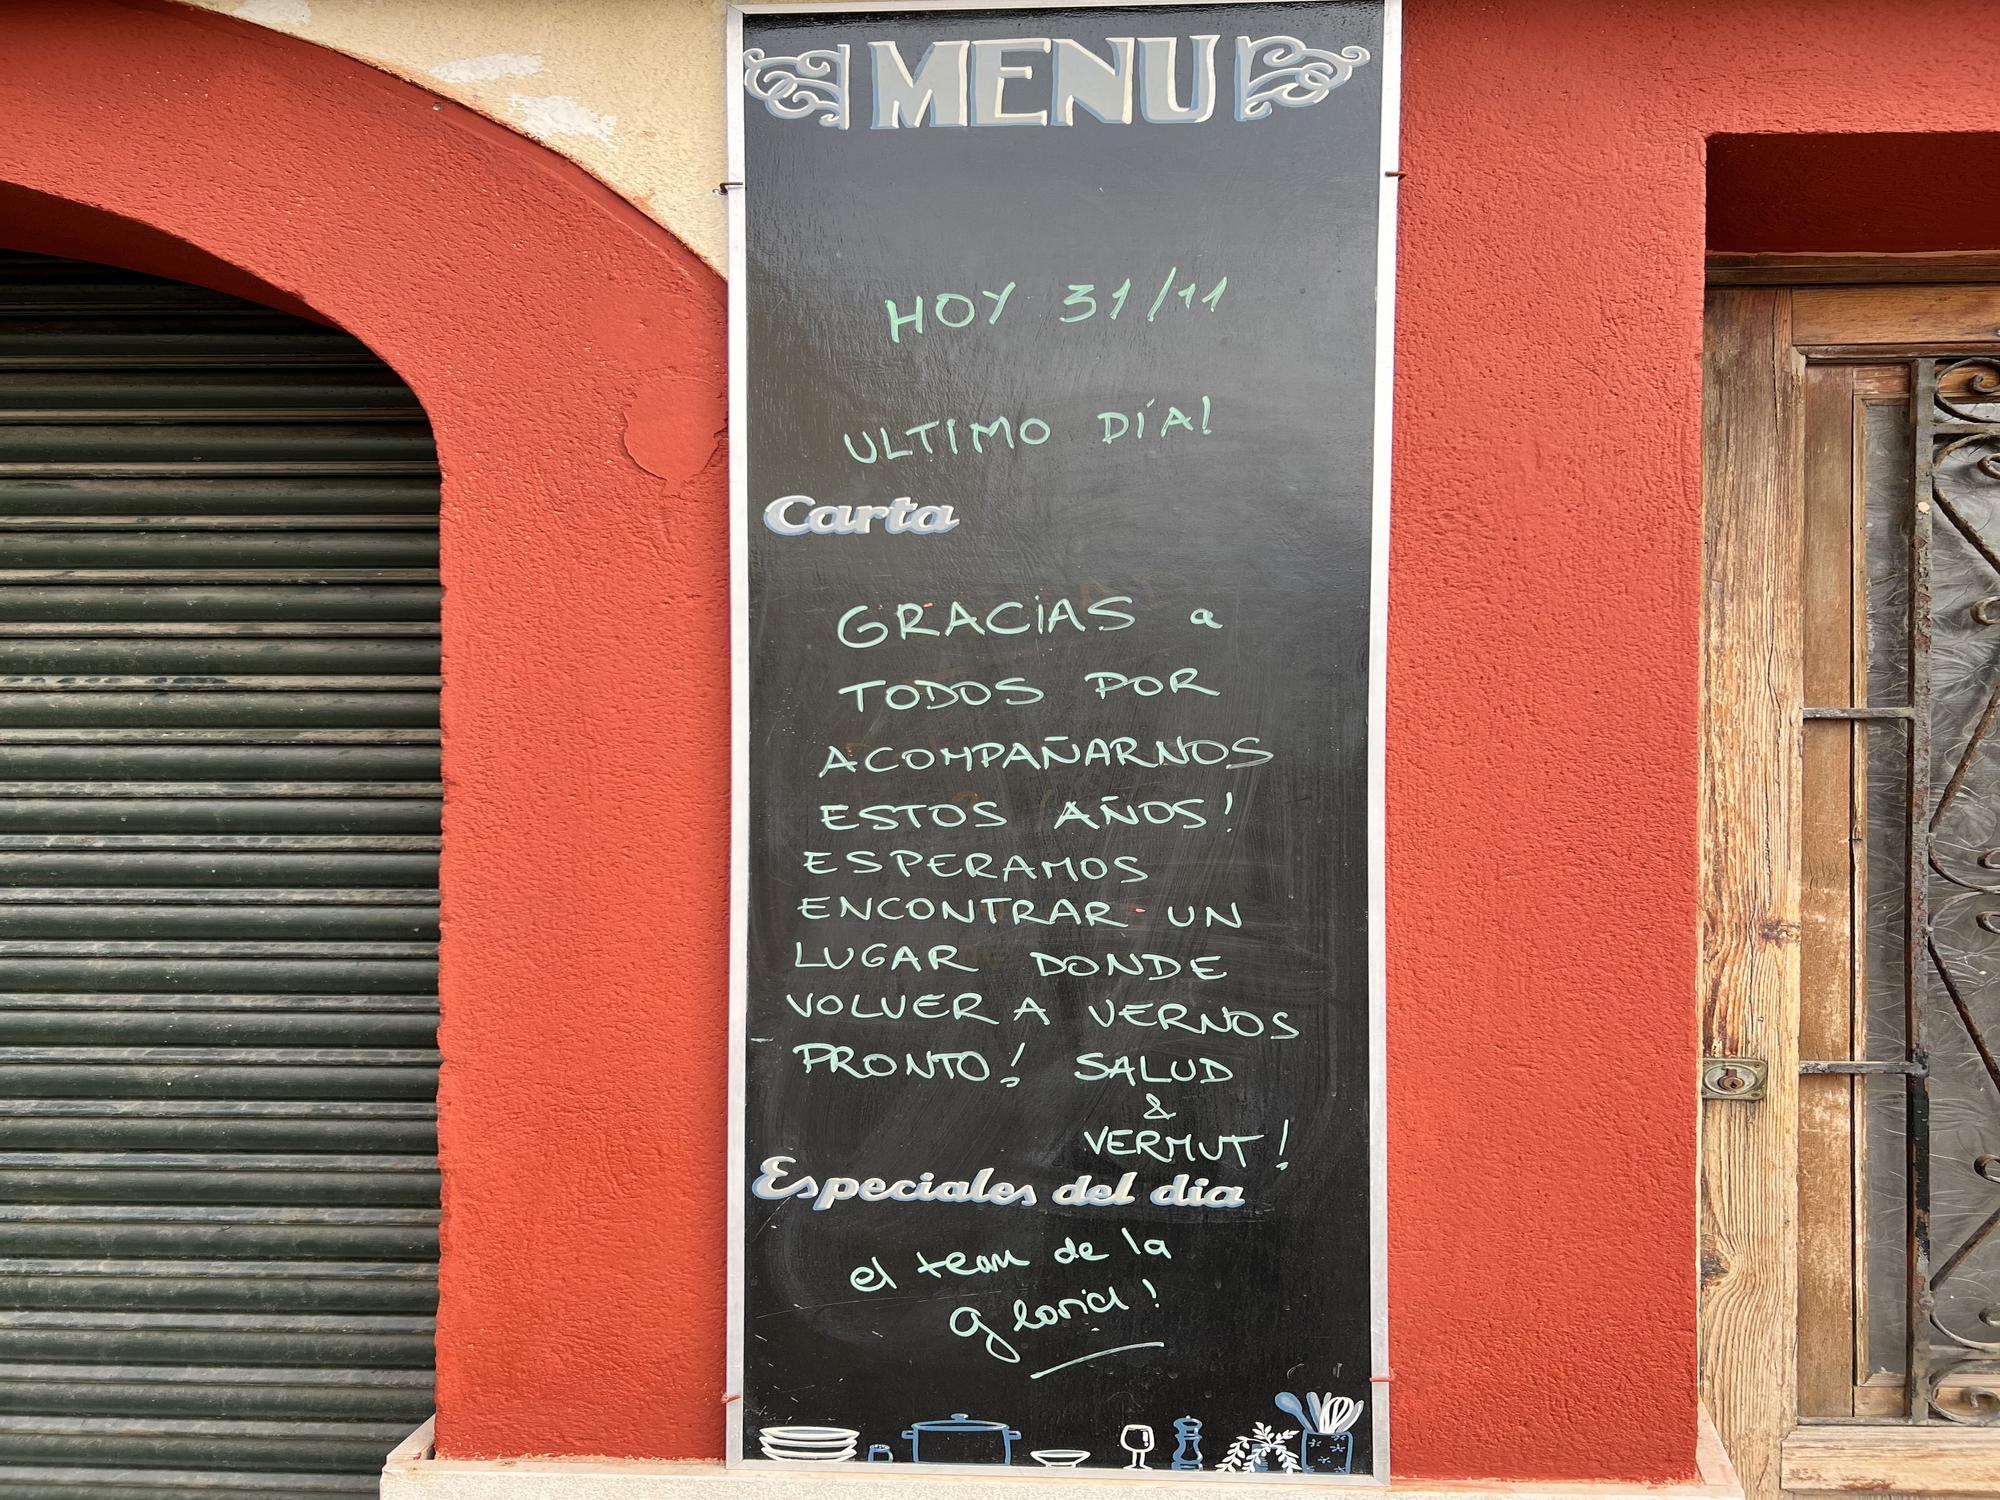 MENU
HOY 31/11
ULTIMO DÍA!
Carta
GRACIAS a
TODOS POR
ACOMPAÑARNOS
ESTOS AÑOS!
ESPERAMOS
ENCONTRAR UN
LUGAR DONDE
VOLVER A VERNOS
PRONTO! SALUD
&
VERMUT!
Especiales del dia
el team de la
Gloria!